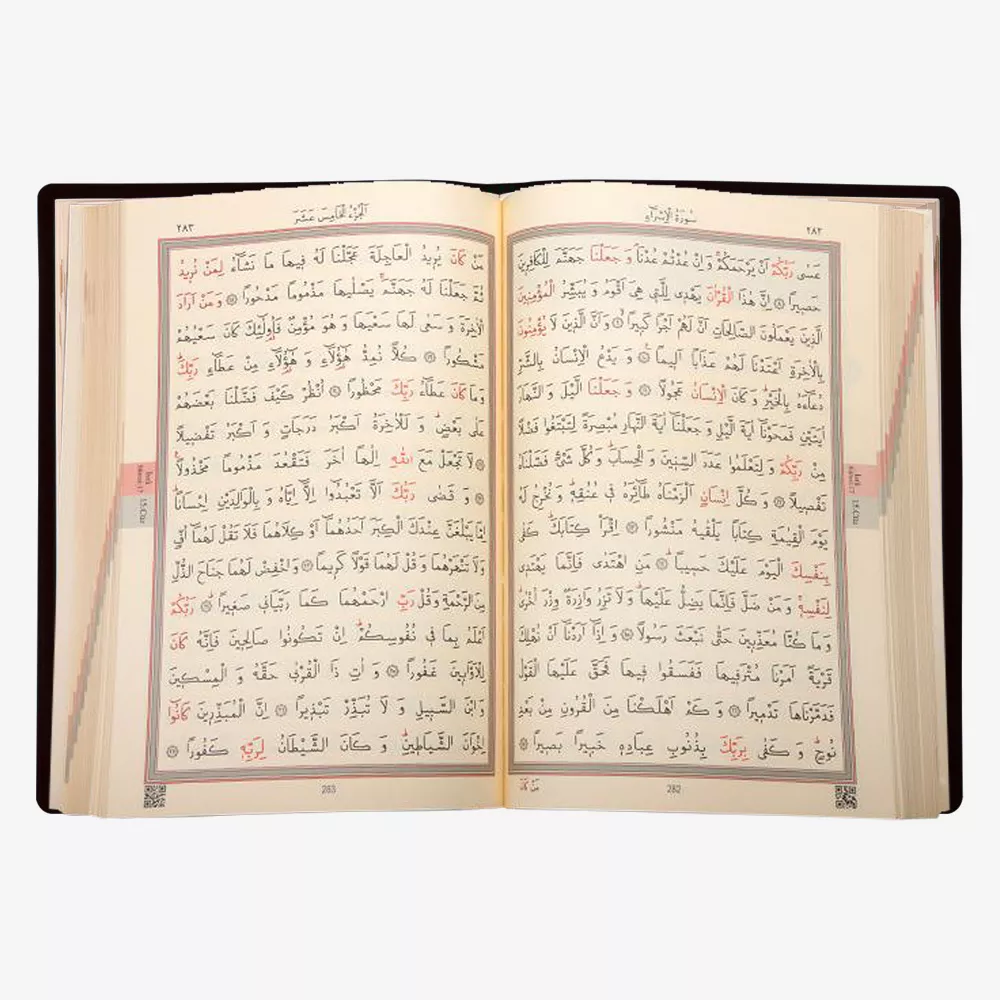 سُورَةُ الْاِسْرَاءِ
٢٨٢
عَسٰى رَبُّكُمْ اَنْ يَرْحَمَكُمْ وَاِنْ عُدْتُمْ عُدْنَا وَجَعَلْنَا جَهَنَّمَ لِلْكَافِرِينَ
حَصِيرًا ۝ اِنَّ هٰذَا الْقُرْاٰنَ يَهْدِى لِلَّتِى هِىَ اَقْوَمُ وَيُبَشِّرُ الْمُؤْمِنِينَ
الَّذِينَ يَعْمَلُونَ الصَّالِحَاتِ اَنَّ لَهُمْ اَجْرًا كَبِيرًا ۝ وَاَنَّ الَّذِينَ لَا يُؤْمِنُونَ
بِالْاٰخِرَةِ اَعْتَدْنَا لَهُمْ عَذَابًا اَلِيمًا ۝ وَيَدْعُ الْاِنْسَانُ بِالشَّرِّ
دُعَاءَهُ بِالْخَيْرِ وَكَانَ الْاِنْسَانُ عَجُولًا ۝ وَجَعَلْنَا الَّيْلَ وَالنَّهَارَ
اٰيَتَيْنِ فَمَحَوْنَا اٰيَةَ الَّيْلِ وَجَعَلْنَا اٰيَةَ النَّهَارِ مُبْصِرَةً لِتَبْتَغُوا فَضْلًا
مِنْ رَبِّكُمْ وَلِتَعْلَمُوا عَدَدَ السِّنِينَ وَالْحِسَابَ وَكُلَّ شَىْءٍ فَصَّلْنَاهُ
تَفْصِيلًا ۝ وَكُلَّ اِنْسَانٍ اَلْزَمْنَاهُ طَائِرَهُ فِى عُنُقِهِ وَنُخْرِجُ لَهُ
يَوْمَ الْقِيٰمَةِ كِتَابًا يَلْقٰيهُ مَنْشُورًا ۝ اِقْرَاْ كِتَابَكَ كَفٰى
بِنَفْسِكَ الْيَوْمَ عَلَيْكَ حَسِيبًا ۝ مَنِ اهْتَدٰى فَاِنَّمَا يَهْتَدِى
لِنَفْسِهِ وَمَنْ ضَلَّ فَاِنَّمَا يَضِلُّ عَلَيْهَا وَلَا تَزِرُ وَازِرَةٌ وِزْرَ اُخْرٰى
وَمَا كُنَّا مُعَذِّبِينَ حَتّٰى نَبْعَثَ رَسُولًا ۝ وَاِذَا اَرَدْنَا اَنْ نُهْلِكَ
قَرْيَةً اَمَرْنَا مُتْرَفِيهَا فَفَسَقُوا فِيهَا فَحَقَّ عَلَيْهَا الْقَوْلُ
فَدَمَّرْنَاهَا تَدْمِيرًا ۝ وَكَمْ اَهْلَكْنَا مِنَ الْقُرُونِ مِنْ بَعْدِ
نُوحٍ وَكَفٰى بِرَبِّكَ بِذُنُوبِ عِبَادِهِ خَبِيرًا بَصِيرًا ۝
282
مَنْ كَانَ
اَلْجُزْءُ الْخَامِسَ عَشَرَ
٢٨٣
مَنْ كَانَ يُرِيدُ الْعَاجِلَةَ عَجَّلْنَا لَهُ فِيهَا مَا نَشَاءُ لِمَنْ نُرِيدُ
ثُمَّ جَعَلْنَا لَهُ جَهَنَّمَ يَصْلٰيهَا مَذْمُومًا مَدْحُورًا ۝ وَمَنْ اَرَادَ
الْاٰخِرَةَ وَسَعٰى لَهَا سَعْيَهَا وَهُوَ مُؤْمِنٌ فَاُولٰئِكَ كَانَ سَعْيُهُمْ
مَشْكُورًا ۝ كُلًّا نُمِدُّ هٰؤُلَاءِ وَهٰؤُلَاءِ مِنْ عَطَاءِ رَبِّكَ
وَمَا كَانَ عَطَاءُ رَبِّكَ مَحْظُورًا ۝ اُنْظُرْ كَيْفَ فَضَّلْنَا بَعْضَهُمْ
عَلٰى بَعْضٍ وَلَلْاٰخِرَةُ اَكْبَرُ دَرَجَاتٍ وَاَكْبَرُ تَفْضِيلًا
۝ لَا تَجْعَلْ مَعَ اللّٰهِ اِلٰهًا اٰخَرَ فَتَقْعُدَ مَذْمُومًا مَخْذُولًا
۝ وَقَضٰى رَبُّكَ اَلَّا تَعْبُدُوا اِلَّا اِيَّاهُ وَبِالْوَالِدَيْنِ اِحْسَانًا
اِمَّا يَبْلُغَنَّ عِنْدَكَ الْكِبَرَ اَحَدُهُمَا اَوْ كِلَاهُمَا فَلَا تَقُلْ لَهُمَا اُفٍّ
وَلَا تَنْهَرْهُمَا وَقُلْ لَهُمَا قَوْلًا كَرِيمًا ۝ وَاخْفِضْ لَهُمَا جَنَاحَ الذُّلِّ
مِنَ الرَّحْمَةِ وَقُلْ رَبِّ ارْحَمْهُمَا كَمَا رَبَّيَانِى صَغِيرًا ۝ رَبُّكُمْ
اَعْلَمُ بِمَا فِى نُفُوسِكُمْ اِنْ تَكُونُوا صَالِحِينَ فَاِنَّهُ كَانَ
لِلْاَوَّابِينَ غَفُورًا ۝ وَاٰتِ ذَا الْقُرْبٰى حَقَّهُ وَالْمِسْكِينَ
وَابْنَ السَّبِيلِ وَلَا تُبَذِّرْ تَبْذِيرًا ۝ اِنَّ الْمُبَذِّرِينَ كَانُوا
اِخْوَانَ الشَّيَاطِينِ وَكَانَ الشَّيْطَانُ لِرَبِّهِ كَفُورًا ۝
283